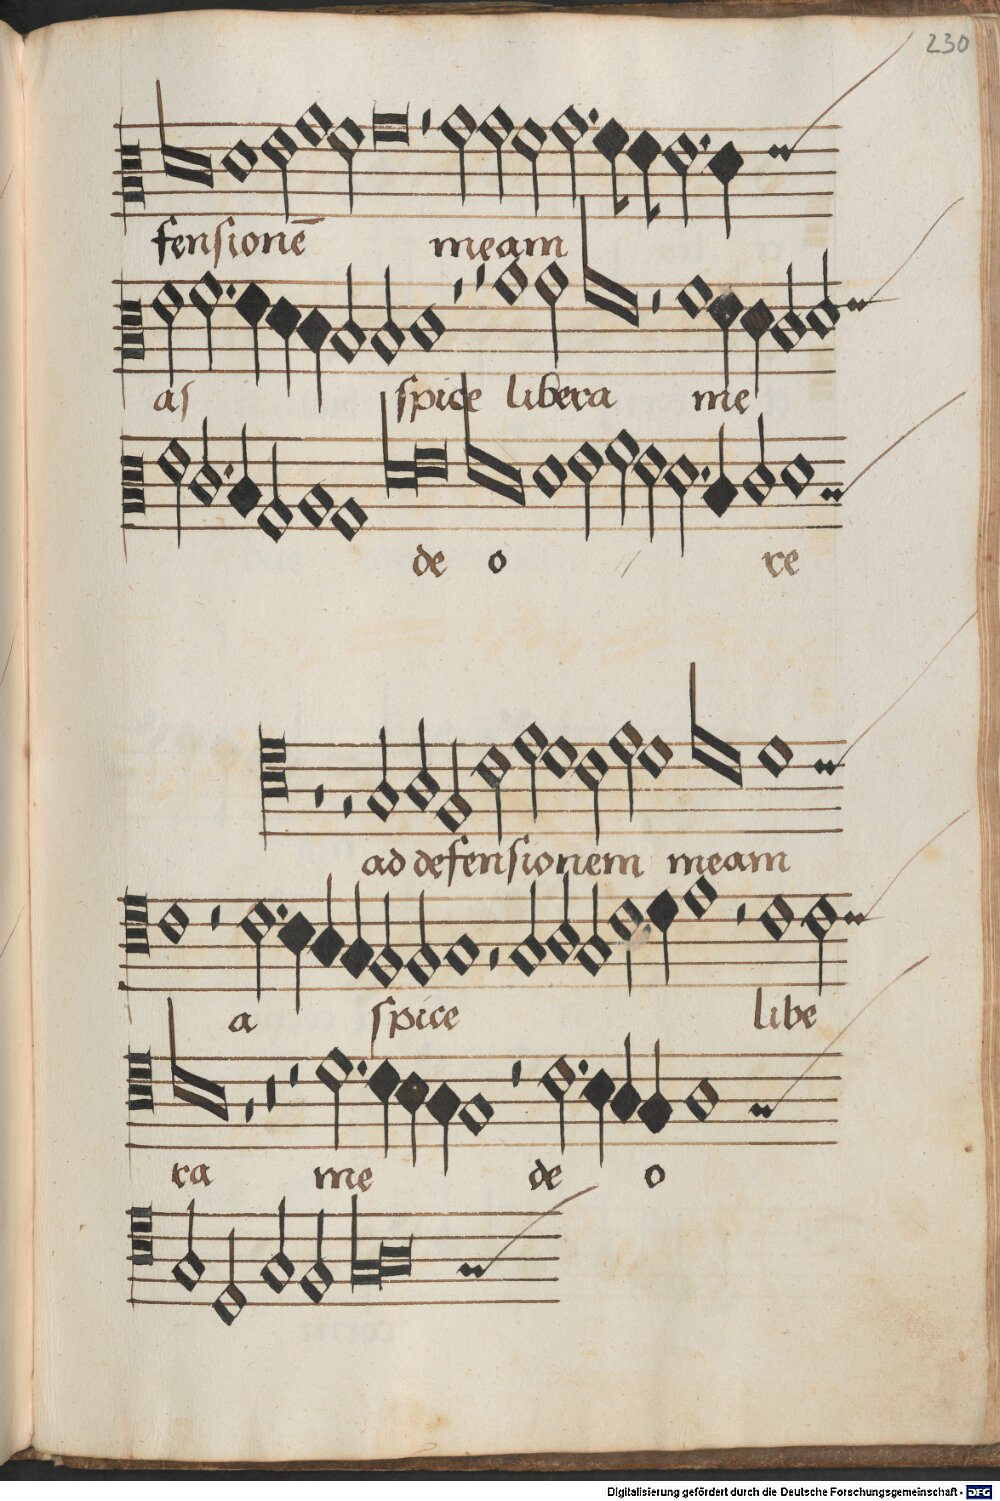 230
fensionē meam
as spice libera me
de o re
ad defensionem meam
a spice libe
ra me de o
Digitalisierung gefördert durch die Deutsche Forschungsgemeinschaft - DFG